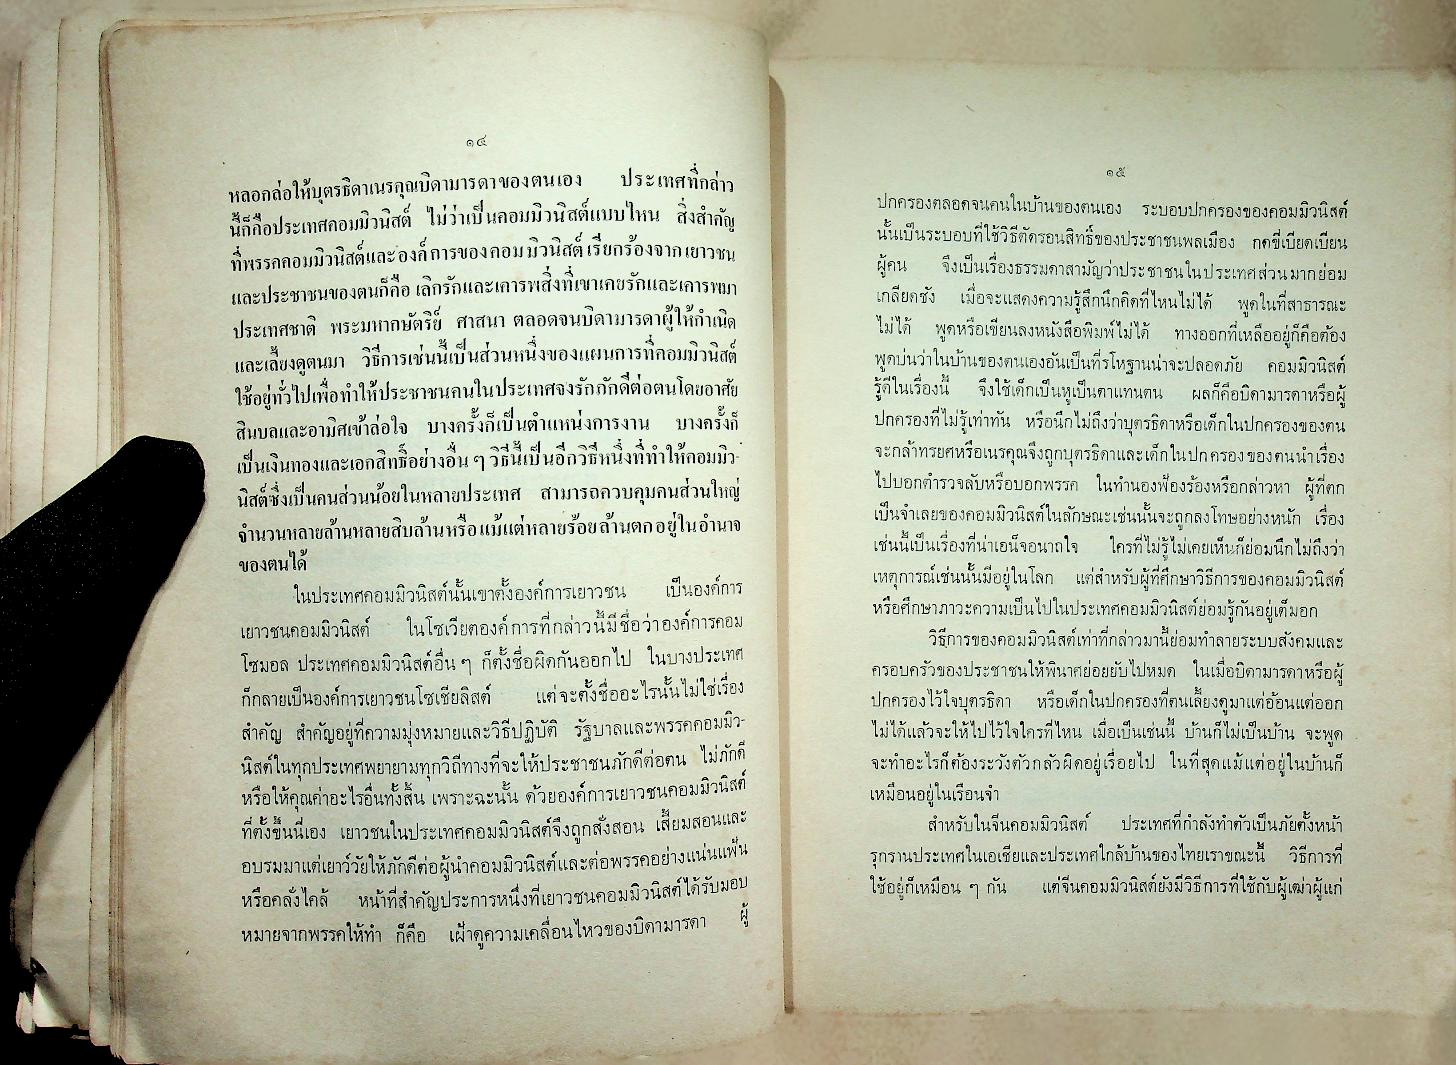 ๑๔
หลอกล่อให้บุตรธิดาเนรคุณบิดามารดาของตนเอง ประเทศที่กล่าว
นี้ก็คือประเทศคอมมิวนิสต์ ไม่ว่าเป็นคอมมิวนิสต์แบบไหน สิ่งสำคัญ
ที่พรรคคอมมิวนิสต์และองค์การของคอมมิวนิสต์เรียกร้องจากเยาวชน
และประชาชนของตนก็คือ เลิกรักและเคารพสิ่งที่เขาเคยรักและเคารพมา
ประเทศชาติ พระมหากษัตริย์ ศาสนา ตลอดจนบิดามารดาผู้ให้กำเนิด
และเลี้ยงดูตนมา วิธีการเช่นนี้เป็นส่วนหนึ่งของแผนการที่คอมมิวนิสต์
ใช้อยู่ทั่วไปเพื่อทำให้ประชาชนคนในประเทศจงรักภักดีต่อตนโดยอาศัย
สินบลและอามิศเข้าล่อใจ บางครั้งก็เป็นตำแหน่งการงาน บางครั้งก็
เป็นเงินทองและเอกสิทธิ์อย่างอื่น ๆ วิธีนี้เป็นอีกวิธีหนึ่งที่ทำให้คอมมิว-
นิสต์ซึ่งเป็นคนส่วนน้อยในหลายประเทศ สามารถควบคุมคนส่วนใหญ่
จำนวนหลายล้านหลายสิบล้านหรือแม้แต่หลายร้อยล้านตกอยู่ในอำนาจ
ของตนได้
ในประเทศคอมมิวนิสต์นั้นเขาตั้งองค์การเยาวชน เป็นองค์การ
เยาวชนคอมมิวนิสต์ ในโซเวียตองค์การที่กล่าวนี้มีชื่อว่าองค์การคอม
โซมอล ประเทศคอมมิวนิสต์อื่น ๆ ก็ตั้งชื่อผิดกันออกไป ในบางประเทศ
ก็กลายเป็นองค์การเยาวชนโซเชียลิสต์ แต่จะตั้งชื่ออะไรนั้นไม่ใช่เรื่อง
สำคัญ สำคัญอยู่ที่ความมุ่งหมายและวิธีปฏิบัติ รัฐบาลและพรรคคอมมิว-
นิสต์ในทุกประเทศพยายามทุกวิถีทางที่จะให้ประชาชนภักดีต่อตน ไม่ภักดี
หรือให้คุณค่าอะไรอื่นทั้งสิ้น เพราะฉะนั้น ด้วยองค์การเยาวชนคอมมิวนิสต์
ที่ตั้งขึ้นนี่เอง เยาวชนในประเทศคอมมิวนิสต์จึงถูกสั่งสอน เสี้ยมสอนและ
อบรมมาแต่เยาว์วัยให้ภักดีต่อผู้นำคอมมิวนิสต์และต่อพรรคอย่างแน่นแฟ้น
หรือคลั่งไคล้ หน้าที่สำคัญประการหนึ่งที่เยาวชนคอมมิวนิสต์ได้รับมอบ
หมายจากพรรคให้ทำ ก็คือ เฝ้าดูความเคลื่อนไหวของบิดามารดา ผู้
๑๕
ปกครองตลอดจนคนในบ้านของตนเอง ระบอบปกครองของคอมมิวนิสต์
นั้นเป็นระบอบที่ใช้วิธีตัดรอนสิทธิ์ของประชาชนพลเมือง กดขี่เบียดเบียน
ผู้คน จึงเป็นเรื่องธรรมดาสามัญว่าประชาชนในประเทศส่วนมากย่อม
เกลียดชัง เมื่อจะแสดงความรู้สึกนึกคิดที่ไหนไม่ได้ พูดในที่สาธารณะ
ไม่ได้ พูดหรือเขียนลงหนังสือพิมพ์ไม่ได้ ทางออกที่เหลืออยู่ก็คือต้อง
พูดบ่นว่าในบ้านของตนเองอันเป็นที่รโหฐานน่าจะปลอดภัย คอมมิวนิสต์
รู้ดีในเรื่องนี้ จึงใช้เด็กเป็นหูเป็นตาแทนตน ผลก็คือบิดามารดาหรือผู้
ปกครองที่ไม่รู้เท่าทัน หรือนึกไม่ถึงว่าบุตรธิดาหรือเด็กในปกครองของตน
จะกล้าทรยศหรือเนรคุณจึงถูกบุตรธิดาและเด็กในปกครองของตนนำเรื่อง
ไปบอกตำรวจลับหรือบอกพรรค ในทำนองฟ้องร้องหรือกล่าวหา ผู้ที่ตก
เป็นจำเลยของคอมมิวนิสต์ในลักษณะเช่นนั้นจะถูกลงโทษอย่างหนัก เรื่อง
เช่นนี้เป็นเรื่องที่น่าเอน็จอนาถใจ ใครที่ไม่รู้ไม่เคยเห็นก็ย่อมนึกไม่ถึงว่า
เหตุการณ์เช่นนั้นมีอยู่ในโลก แต่สำหรับผู้ที่ศึกษาวิธีการของคอมมิวนิสต์
หรือศึกษาภาวะความเป็นไปในประเทศคอมมิวนิสต์ย่อมรู้กันอยู่เต็มอก
วิธีการของคอมมิวนิสต์เท่าที่กล่าวมานี้ย่อมทำลายระบบสังคมและ
ครอบครัวของประชาชนให้พินาศย่อยยับไปหมด ในเมื่อบิดามารดาหรือผู้
ปกครองไว้ใจบุตรธิดา หรือเด็กในปกครองที่ตนเลี้ยงดูมาแต่อ้อนแต่ออก
ไม่ได้แล้วจะให้ไปไว้ใจใครที่ไหน เมื่อเป็นเช่นนี้ บ้านก็ไม่เป็นบ้าน จะพูด
จะทำอะไรก็ต้องระวังตัวกลัวผิดอยู่เรื่อยไป ในที่สุดแม้แต่อยู่ในบ้านก็
เหมือนอยู่ในเรือนจำ
สำหรับในจีนคอมมิวนิสต์ ประเทศที่กำลังทำตัวเป็นภัยตั้งหน้า
รุกรานประเทศในเอเซียและประเทศใกล้บ้านของไทยเราขณะนี้ วิธีการที่
ใช้อยู่ก็เหมือน ๆ กัน แต่จีนคอมมิวนิสต์ยังมีวิธีการที่ใช้กับผู้เฒ่าผู้แก่